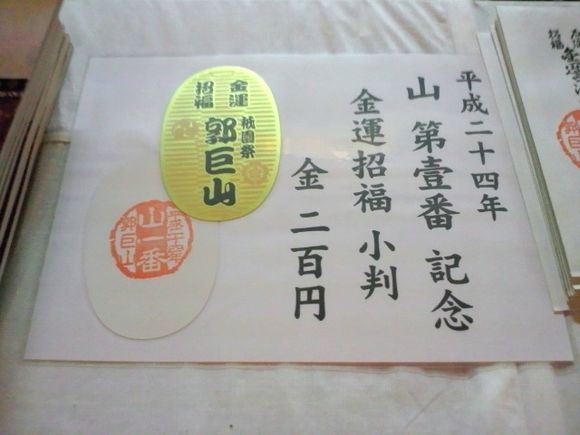 平成二十四年
山 第壹番 記念
金運招福 小判
金 二百円
金運
招福
祇園祭
郭巨山
山一番
郭巨山
招福